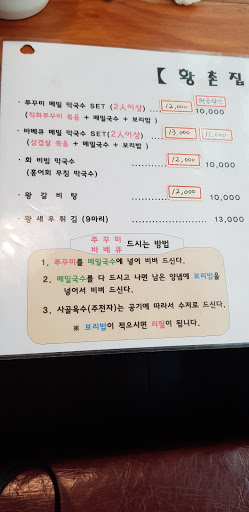 【 황 촌 집
· 쭈꾸미 메밀 막국수 SET (2人이상) .... 12,000 10,000
(직화쭈꾸미 볶음 + 메밀국수 + 보리밥 )
· 바베큐 메밀 막국수 SET(2人이상) .... 13,000 11,000
(삼겹살 볶음 + 메밀국수 + 보리밥 )
· 회 비빔 막국수 .................. 12,000 10,000
(홍어회 무침 막국수)
· 왕 갈 비 탕 .................. 12,000
· 왕 새 우 튀 김 (9마리) .................. 13,000
쭈 꾸 미
바 베 큐 드시는 방법
1. 쭈꾸미를 메밀국수에 넣어 비벼 드신다.
2. 메밀국수를 다 드시고 나면 남은 양념에 보리밥을
넣어서 비벼 드신다.
3. 사골육수(주전자)는 공기에 따라서 수저로 드신다.
※ 보리밥이 적으시면 리필이 됩니다.